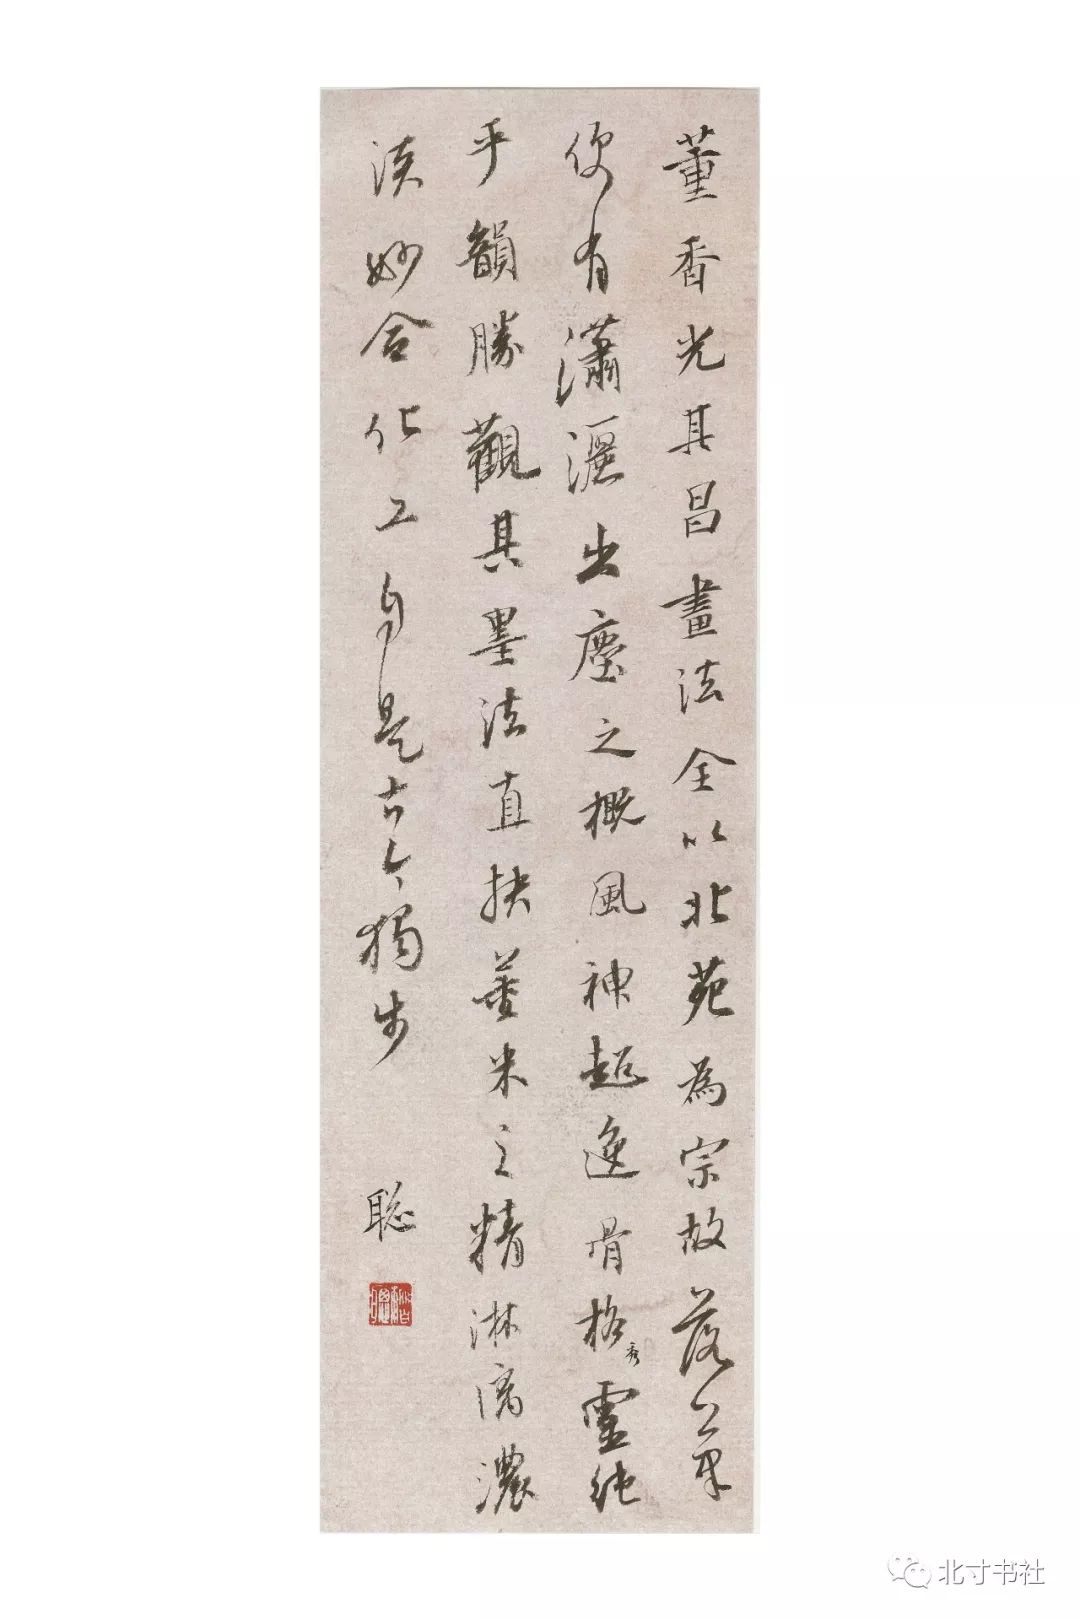 董香光其昌畫法全以北苑為宗故落筆
便有瀟灑出塵之概風神超逸骨格秀靈純
乎韻勝觀其墨法直抉董米之精淋漓濃
淡妙合化工自是古今獨步
聡
北寸书社